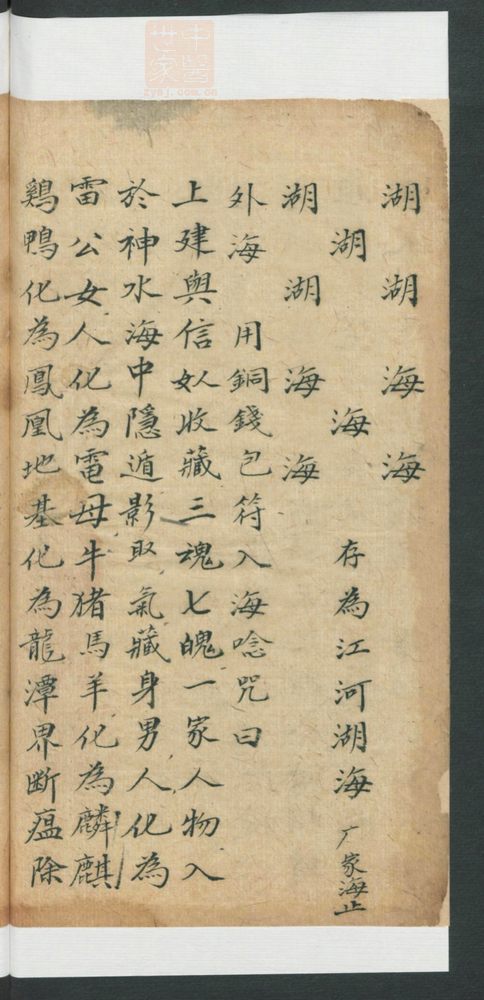 中醫
世家
zysj.com.cn
湖湖海海
湖海 存為江河湖海 厂家海止
湖湖海海
外海 用銅錢包符入海唸咒曰
上建與信收藏三魂七魄一家人物入
於神水海中隱遁影取氣藏身男人化為
雷公女人化為電母牛猪馬羊化為麟麒
鷄鴨化為鳳凰地基化為龍潭界斷瘟除